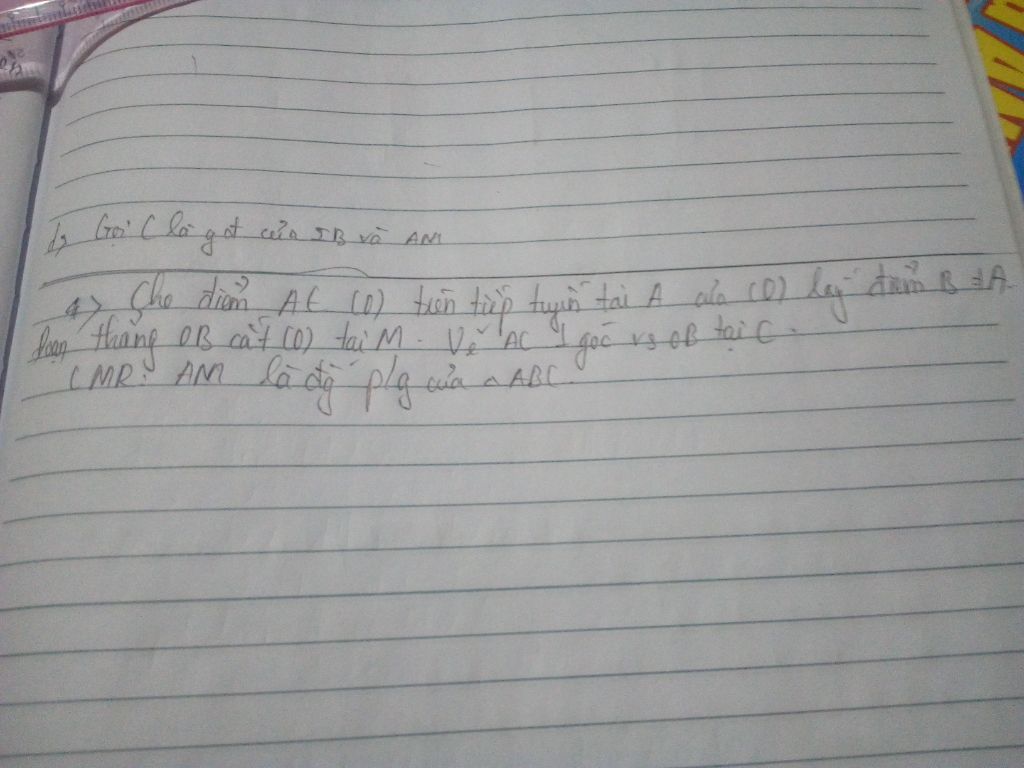 d, Gọi C là g đ của IB và AM
4> Cho điểm A∈ (O) trên tiếp tuyến tại A của (O) lấy điểm B ≠ A.
Đoạn thẳng OB cắt (O) tại M. Vẽ AC ⊥ góc vs OB tại C.
CMR: AM là đg p/g của △ ABC.